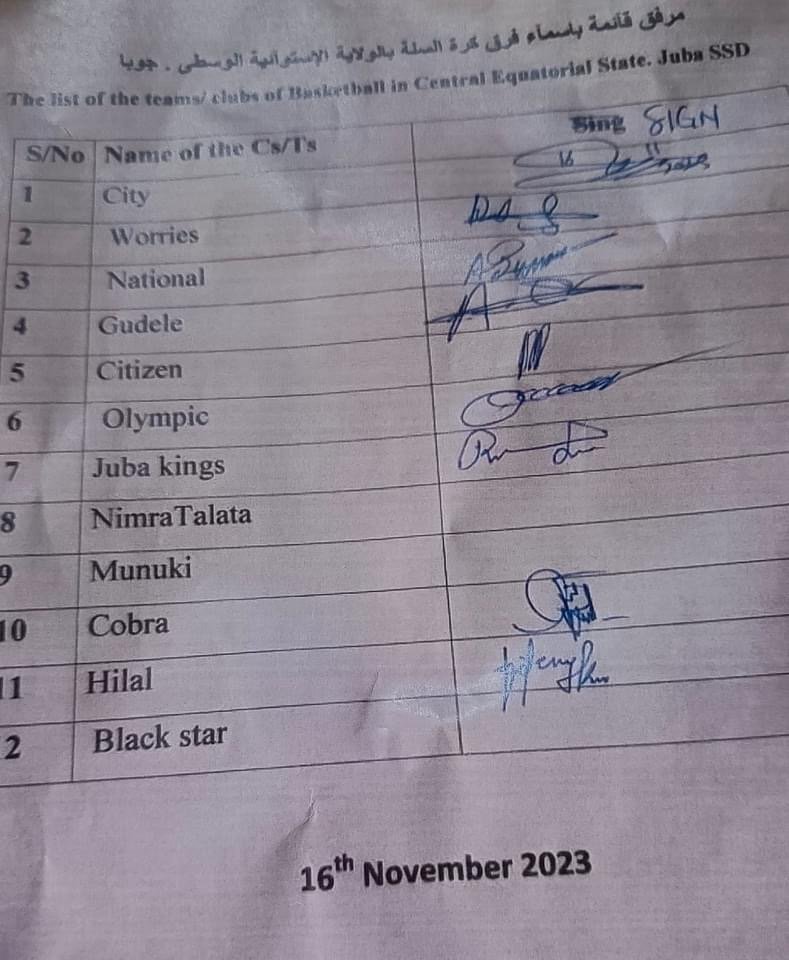 مرفق قائمة باسماء فرق كرة السلة بالولاية الإستوائية الوسطى . جوبا
The list of the teams/ clubs of Basketball in Central Equatorial State. Juba SSD
S/No Name of the Cs/Ts Sing SIGN
1 City 16 11 2023
2 Worries
3 National
4 Gudele
5 Citizen
6 Olympic
7 Juba kings
8 NimraTalata
9 Munuki
10 Cobra
11 Hilal
2 Black star
16th November 2023